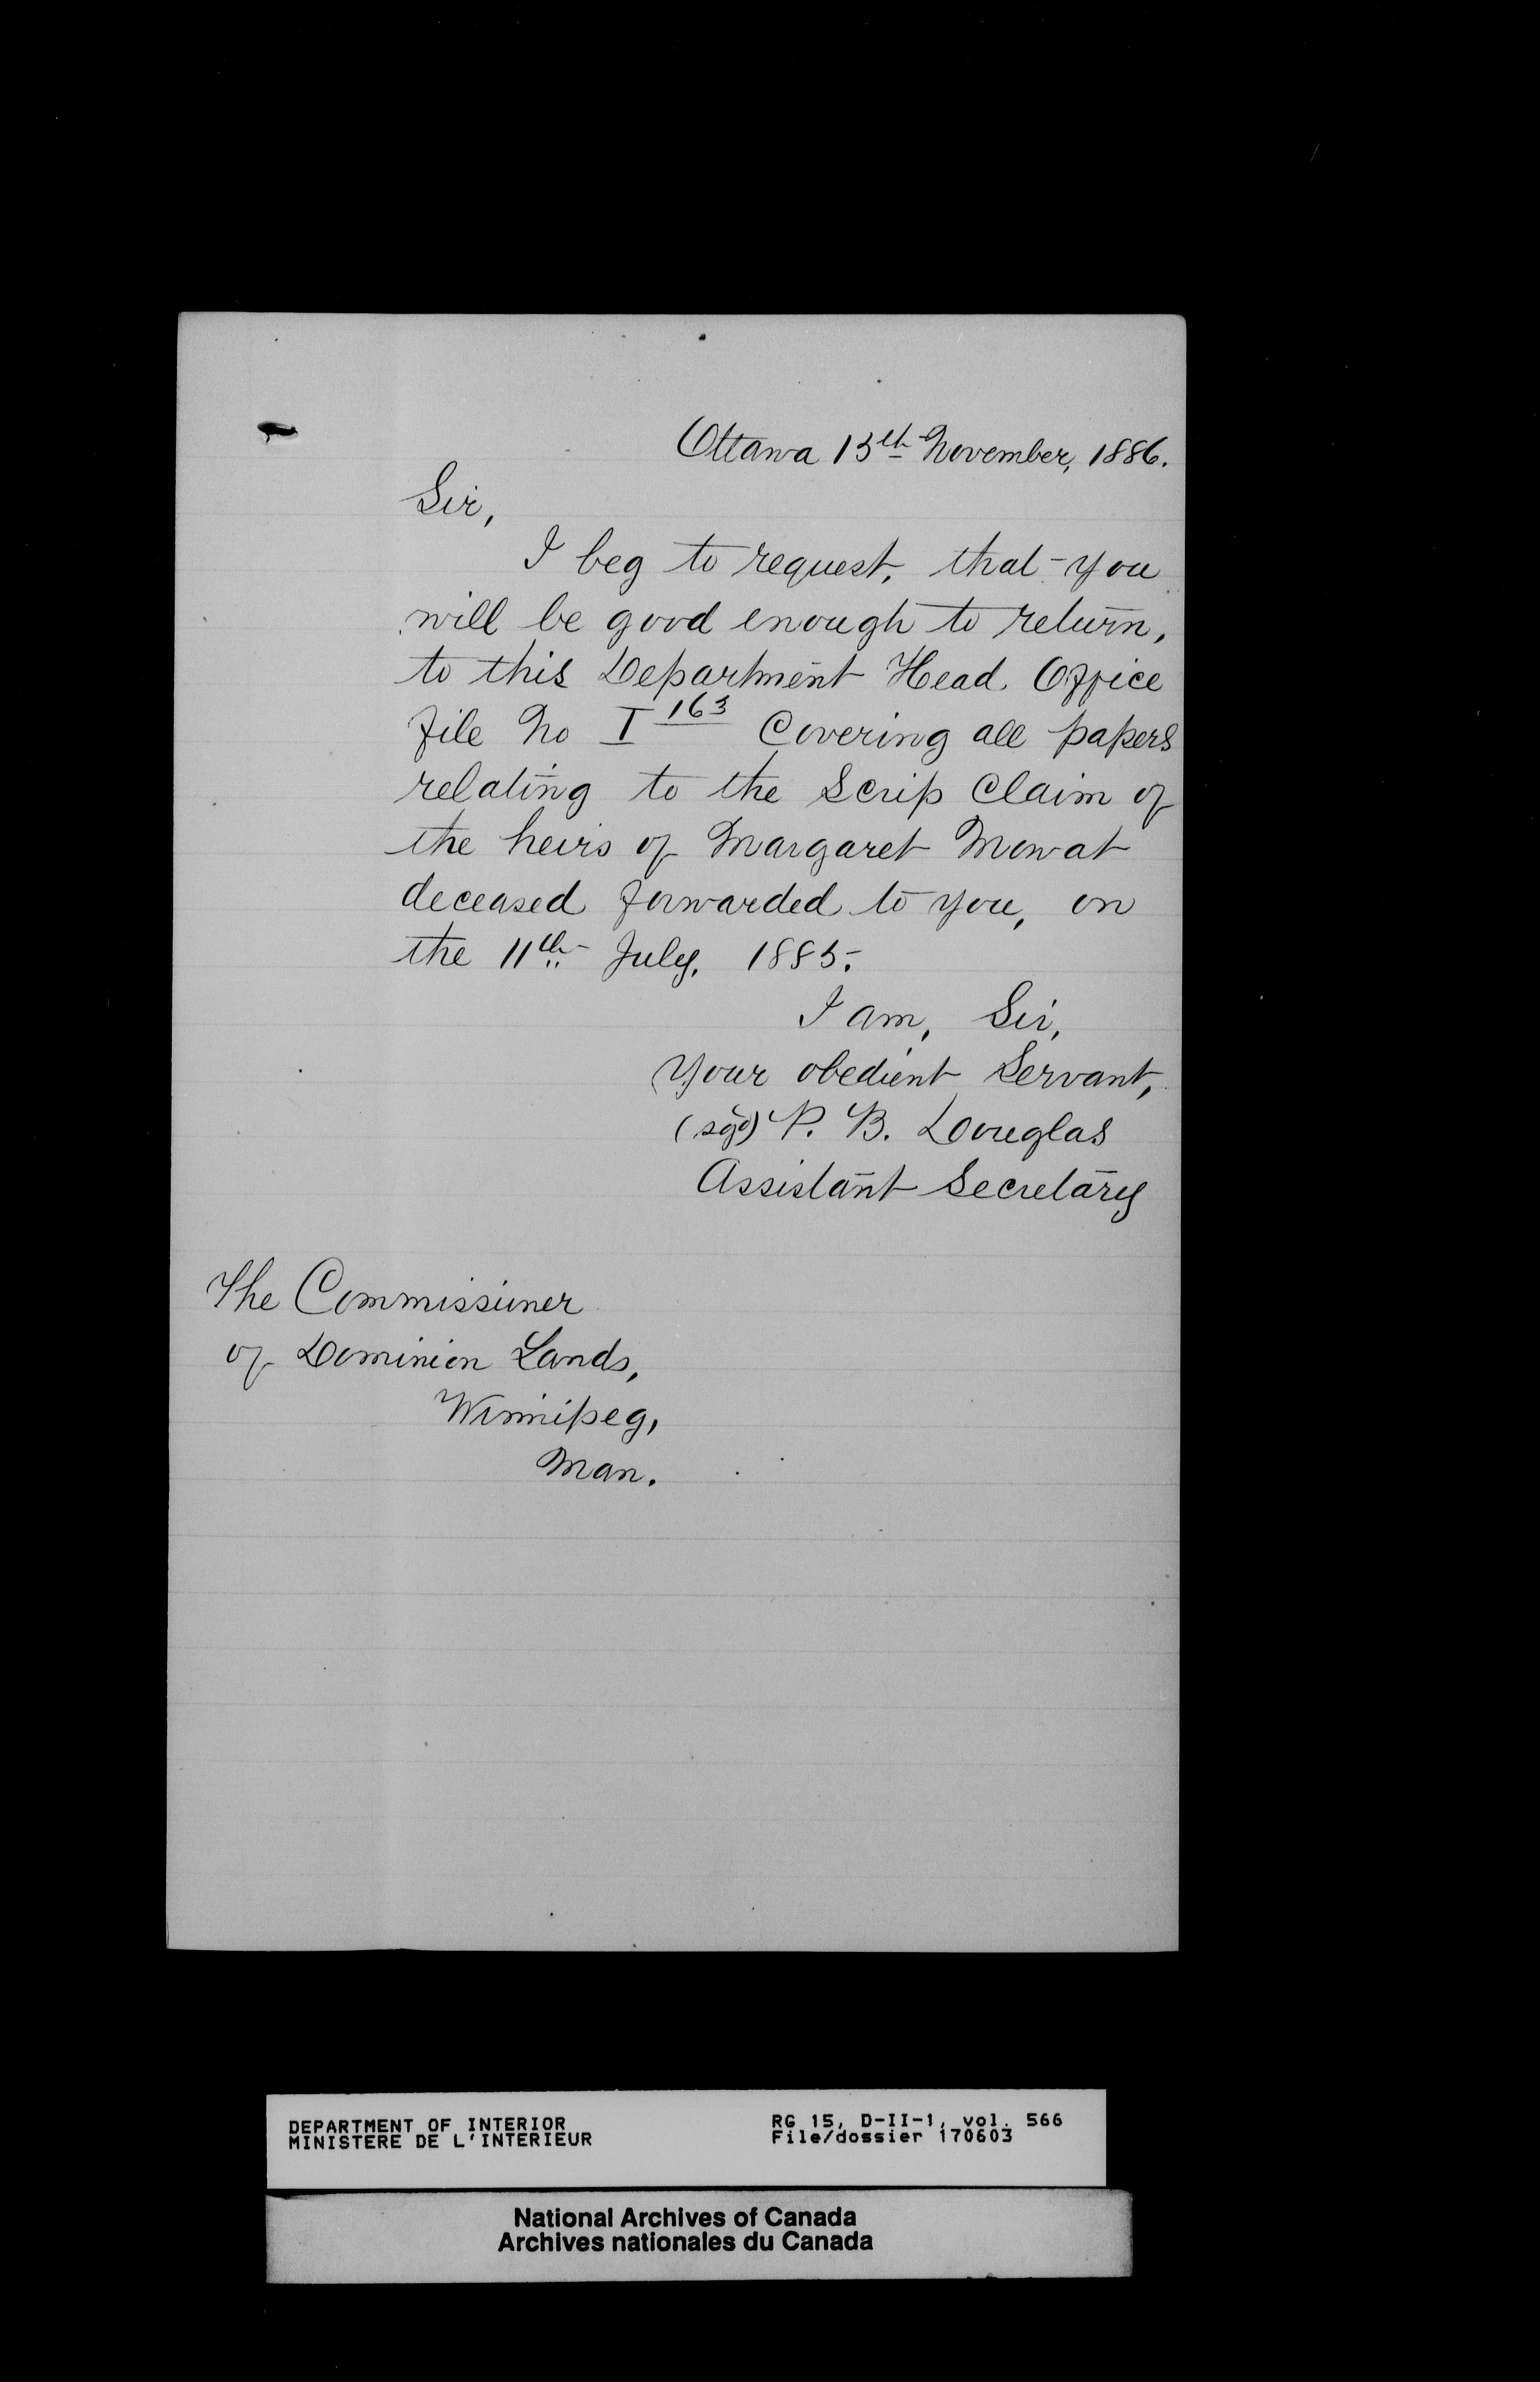 Ottawa 13th November, 1886.
Sir,
I beg to request, that you
will be good enough to return,
to this Department Head Office
file No I 163 Covering all papers
relating to the Scrip Claim of
the heirs of Margaret Mowat
deceased forwarded to you, on
the 11th July, 1885.
I am, Sir,
Your obedient Servant,
(sgd) P. B. Douglas
Assistant Secretary
The Commissioner
of Dominion Lands,
Winnipeg,
Man.
DEPARTMENT OF INTERIOR
MINISTERE DE L'INTERIEUR
RG 15, D-II-1, vol. 566
File/dossier 170603
National Archives of Canada
Archives nationales du Canada